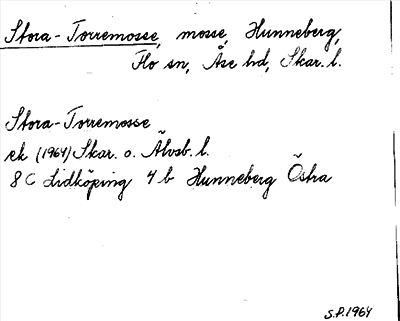 Stora-Torremosse, mosse, Hunneberg,
Flo sn, Åse hd, Skar. l.
Stora-Torremosse
ek (1964) Skar. o. Älvsb. l.
8 C Lidköping 4 b Hunneberg Östra
S.P. 1964